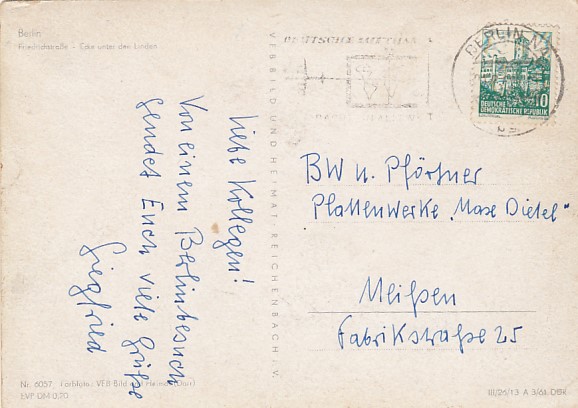 Berlin
Friedrichstraße - Ecke unter den Linden
Liebe Kollegen!
Von einem Berlinbesuch
sendet Euch viele Grüße
Siegfried
VEB BILD UND HEIMAT REICHENBACH i. V.
BERLIN N4
10
DEUTSCHE
DEMOKRATISCHE REPUBLIK
BW u. Pförtner
Plattenwerke "Max Dietel"
Meißen
Fabrikstraße 25
Nr. 6057 Farbfoto: VEB Bild und Heimat
EVP DM 0,20
III/26/13 A 3/61 DDR